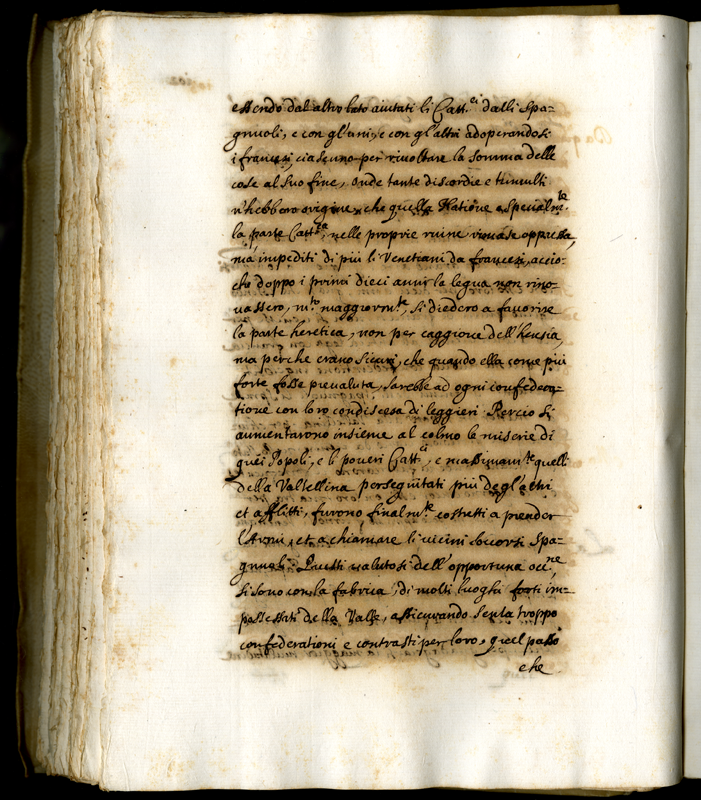 essendo dal altro lato aiutati li Catt.ci dalli Spa=
gnuoli, e con gl'uni, e con gl'altri adoperandosi
i francesi, ciascuno per rivoltare la somma delle
cose al suo fine, onde tante discordie e tumulti
n'hebbero origine, che quella Natione e spetialm.te
la parte Catt.ca, nelle proprie ruine rimase oppressa,
mà impediti di più li Venetiani da francesi, accio=
che doppo i primi dieci anni la legua non rino=
vassero, m.to maggiorm.te, si diedero a favorire
la parte heretica, non per caggione dell'heresia,
ma perche erano sicuri, che quando ella come più
forte fosse prevaluta, sarebbe ad ogni confedera=
tione con loro condiscesa di leggieri. Perciò si
aumentarono insieme al colmo le miserie di
quei Popoli, e li poveri Catt.ci, e massimam.te quelli
della Valtellina perseguitati più degl'altri
et afflitti, furono finalm.te costretti a prender
l'Armi, et a chiamare li vicini soccorsi Spa=
gnuoli. Questi valutosi dell'opportuna occ.ne
si sono con la fabrica, di molti luoghi forti im=
possessati della Valle, assicurando senza troppo
confederationi e contrasti per loro, quel passo
che